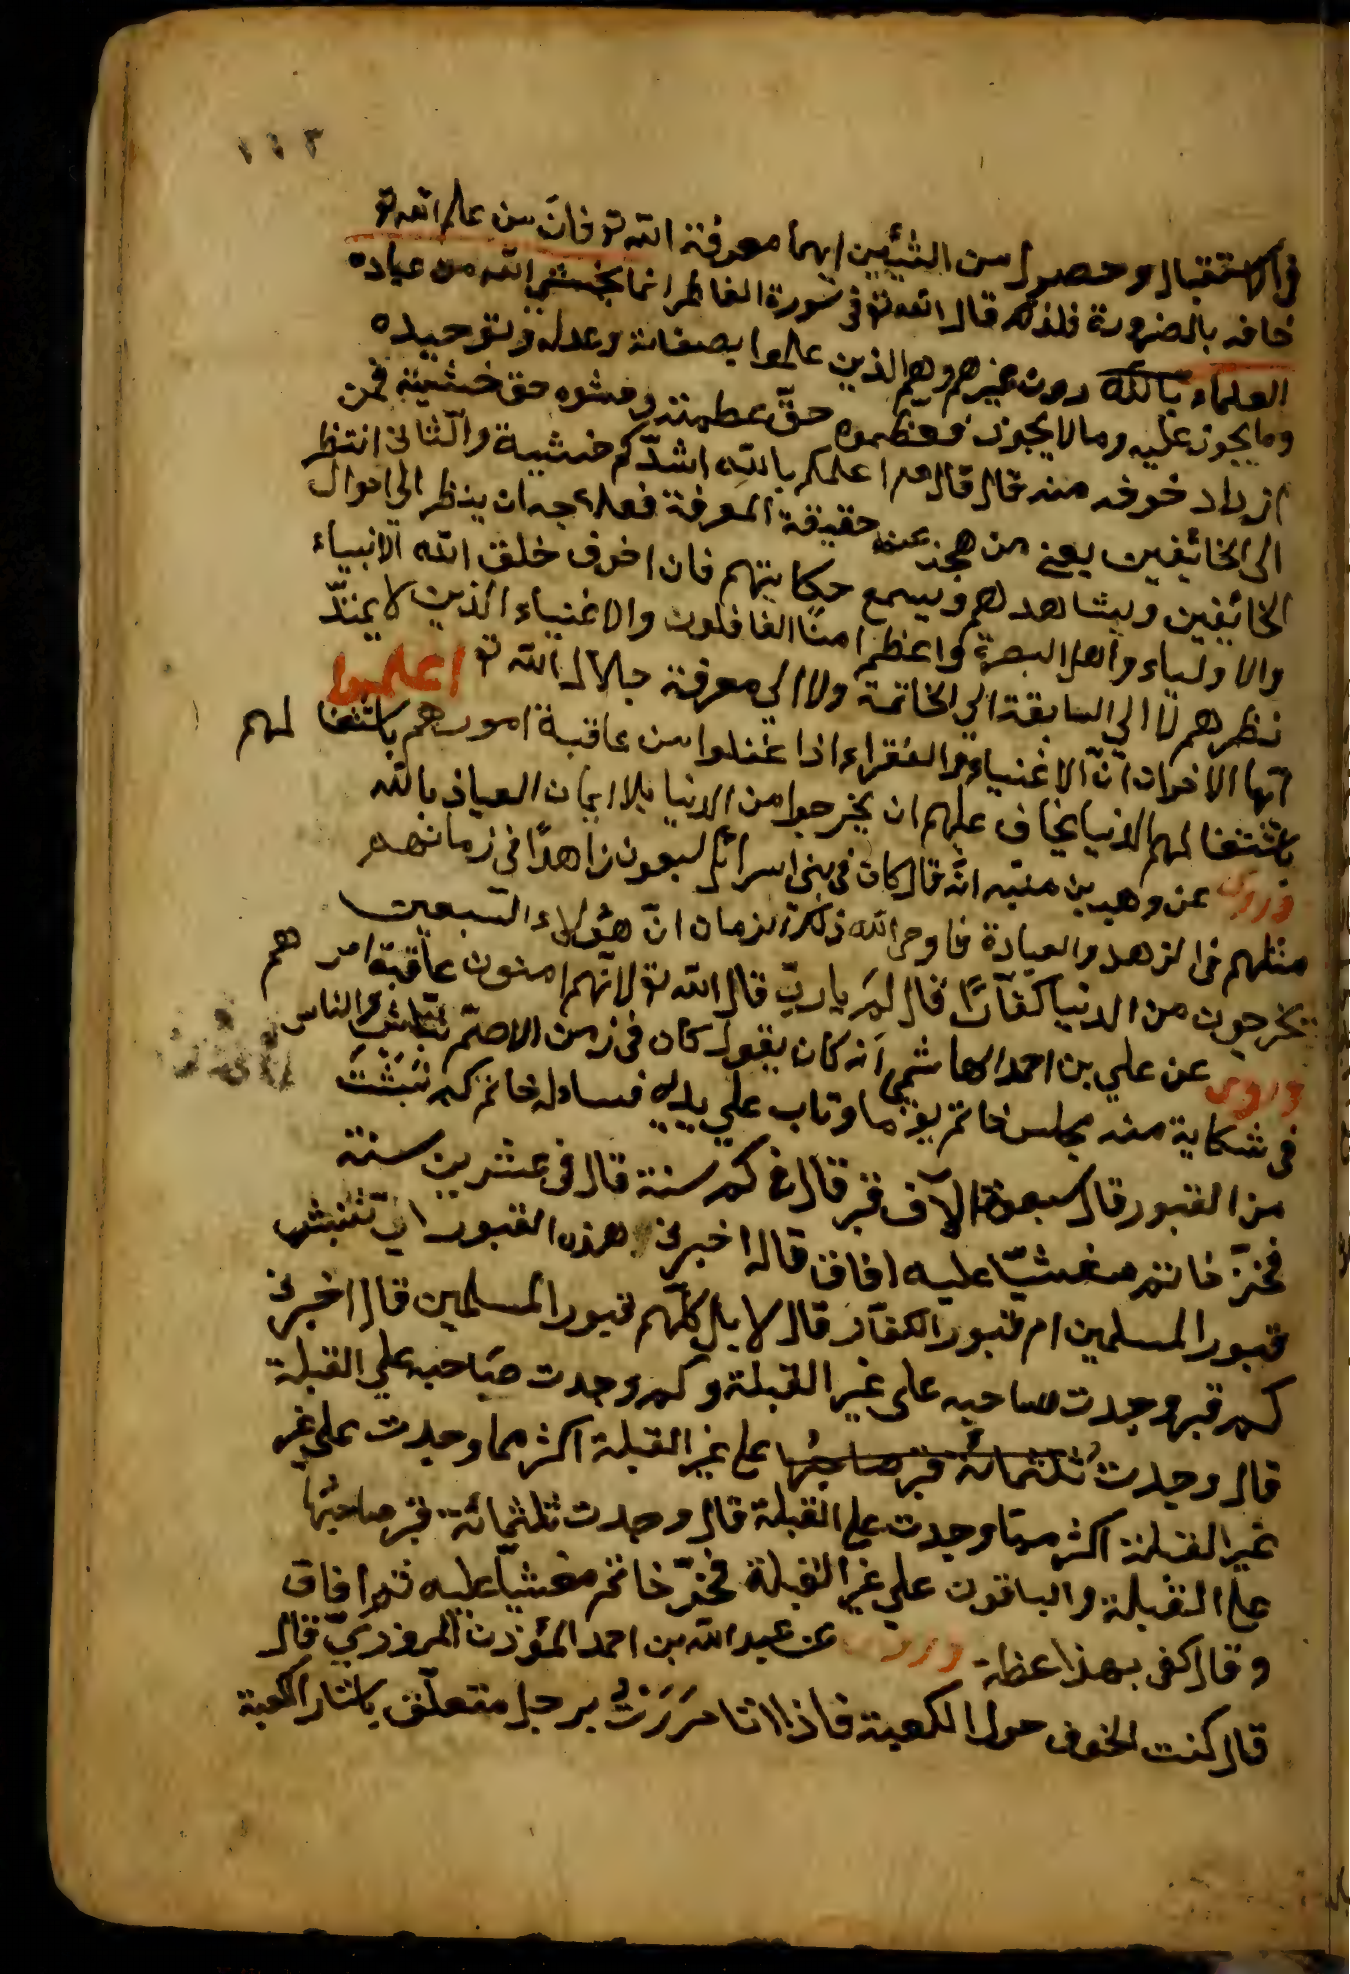 ١١٣
في الاستقبال وحصول من الشيئين ايهما معرفة الله تع فانّ من علم الله تع
خافه بالضرورة فلذلك قال الله تع في سورة الفاطر انما يخشى الله من عباده
العلماء بالله دون غيرهم وهم الذين علموا بصفاته وعدله وتوحيده
وما يجوز عليه وما لا يجوز فعظموه حقّ عظمته وخشوه حق خشيته فمن
ازداد خوفه منه قال قال اعلمكم بالله اشدّكم خشية والثاني انتظر
الى الخائفين يعني من عجز عنه حقيقة المعرفة فعلاجه ان ينظر الى احوال
الخائفين ويشاهدهم ويسمع حكايتهم فان اخوف خلق الله الانبياء
والاولياء واهل البصرة واعظم امنًا الغافلون والاغنياء الذين لا يمتدّ
نظرهم لا الى السابقة الى الخاتمة ولا الى معرفة جلال الله تع اعلموا
ايها الاخوان انّ الاغنياء والفقراء اذا غفلوا من عاقبة امورهم باشتغا لهم
باشتغا لهم الدنيا يخاف عليهم ان يخرجوا من الدنيا بلا ايمان العياذ بالله
وروى عن وهب بن منبه انّه قال كان في بني اسرائل سبعون زاهدًا في زمانهم
مثلهم في الزهد والعبادة فاوحى الله ذلك الزمان انّ هؤلاء السبعين
يخرجون من الدنيا كفّارًا قال لِمَ يا ربّ قال الله تع لانّهم امنون عاقبة امر هم
وروى عن علي بن احمد الهاشمي انه كان يقول كان في زمن الاصمّ نبّاش والناس
في شكاية منه مجلس خاتم يوما وتاب على يديه فسأله خاتم كم نَبَشْتَ
من القبور قال سبعة الآف قبر قال في كم سنة قال في عشرين سنة
فخرّ خاتم مغشيّا عليه افاق قال اخبرني هذه القبور تنبش
قبور المسلمين ام قبور الكفّار قال لا بل كلّهم قبور المسلمين قال اخبرني
كم قبر وجدت صاحبه على غير القبلة وكم وجدت صاحبه على القبلة
قال وجدت ثلثمائة قبر صاحبُها على غير القبلة اكثر مما وجدت على غير
غير القبلة اكثر مما وجدت على القبلة قال وجدت ثلثمائة قبر صاحبُها
على القبلة والباقون على غير القبلة فخرّ خاتم مغشيّا عليه ثم افاق
وقال كفى بهذا عظة وروى عن عبد الله بن احمد المؤذن المروزديّ قال
قال كنت اطوف حول الكعبة فاذا انا مَرَرْتُ برجل متعلّق باستار الكعبة